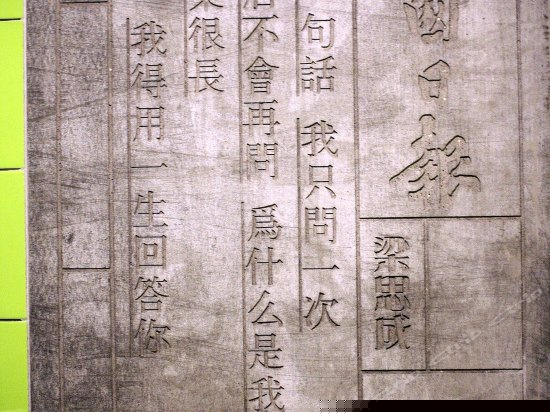 國日報
梁思成
句話 我只問一次
后不會再問 爲什么是我
很長
我得用一生回答你